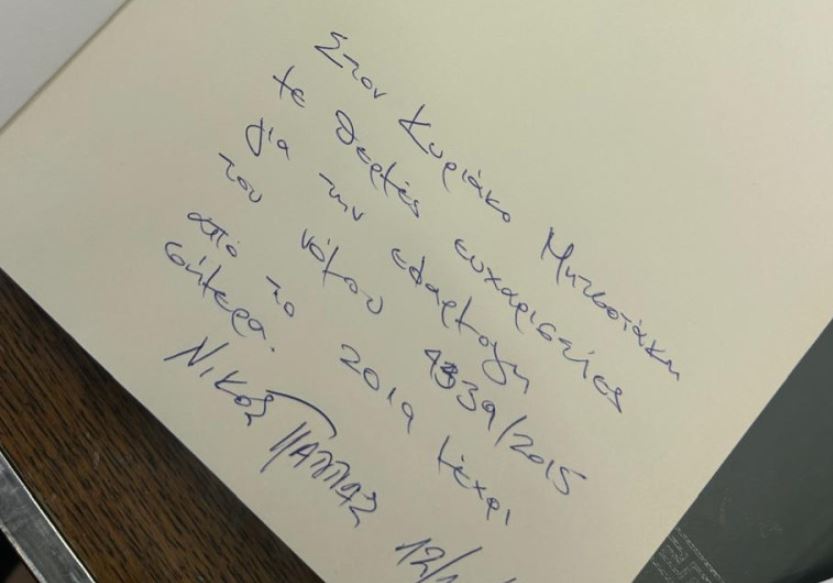 Στον Κυριάκο Μητσοτάκη
με θερμές ευχαριστίες
για την εφαρμογή
του νόμου 4339/2015
από το 2019 μέχρι
σήμερα.
ΝΙΚΟΣ ΠΑΠΠΑΣ
12/